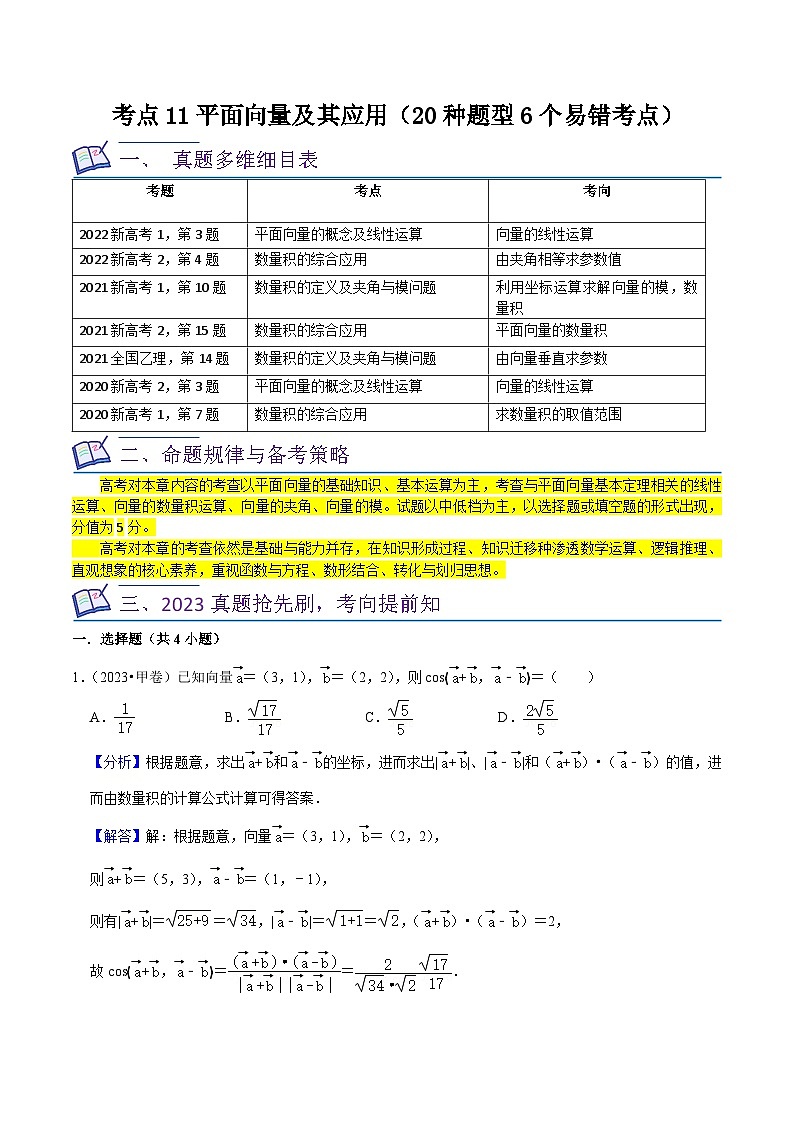 考点11平面向量及其应用（20种题型6个易错考点）
一、 真题多维细目表
考题 考点 考向
2022新高考1，第3题 平面向量的概念及线性运算 向量的线性运算
2022新高考2，第4题 数量积的综合应用 由夹角相等求参数值
2021新高考1，第10题 数量积的定义及夹角与模问题 利用坐标运算求解向量的模，数
量积
2021新高考2，第15题 数量积的综合应用 平面向量的数量积
2021全国乙理，第14题 数量积的定义及夹角与模问题 由向量垂直求参数
2020新高考2，第3题 平面向量的概念及线性运算 向量的线性运算
2020新高考1，第7题 数量积的综合应用 求数量积的取值范围
二、命题规律与备考策略
高考对本章内容的考查以平面向量的基础知识、基本运算为主，考查与平面向量基本定理相关的线性
运算、向量的数量积运算、向量的夹角、向量的模。试题以中低档为主，以选择题或填空题的形式出现，
分值为5分。
高考对本章的考查依然是基础与能力并存，在知识形成过程、知识迁移种渗透数学运算、逻辑推理、
直观想象的核心素养，重视函数与方程、数形结合、转化与划归思想。
三、2023真题抢先刷，考向提前知
一．选择题（共4小题）
1.（2023•甲卷）已知向量a⃗＝（3，1），b⃗＝（2，2），则cos⟨a⃗+b⃗，a⃗﹣b⃗⟩＝（　　）
A．1/17 B．√17/17 C．√5/5 D．2√5/5
【分析】根据题意，求出a⃗+b⃗和a⃗﹣b⃗的坐标，进而求出|a⃗+b⃗|、|a⃗﹣b⃗|和（a⃗+b⃗）•（a⃗﹣b⃗）的值，进
而由数量积的计算公式计算可得答案．
【解答】解：根据题意，向量a⃗＝（3，1），b⃗＝（2，2），
则a⃗+b⃗＝（5，3），a⃗﹣b⃗＝（1，﹣1），
则有|a⃗+b⃗|＝√(25+9)＝√34，|a⃗﹣b⃗|＝√(1+1)＝√2，（a⃗+b⃗）•（a⃗﹣b⃗）＝2，
故cos⟨a⃗+b⃗，a⃗﹣b⃗⟩＝(a⃗+b⃗)•(a⃗-b⃗)/|a⃗+b⃗||a⃗-b⃗|＝2/√34•√2 √17/17．